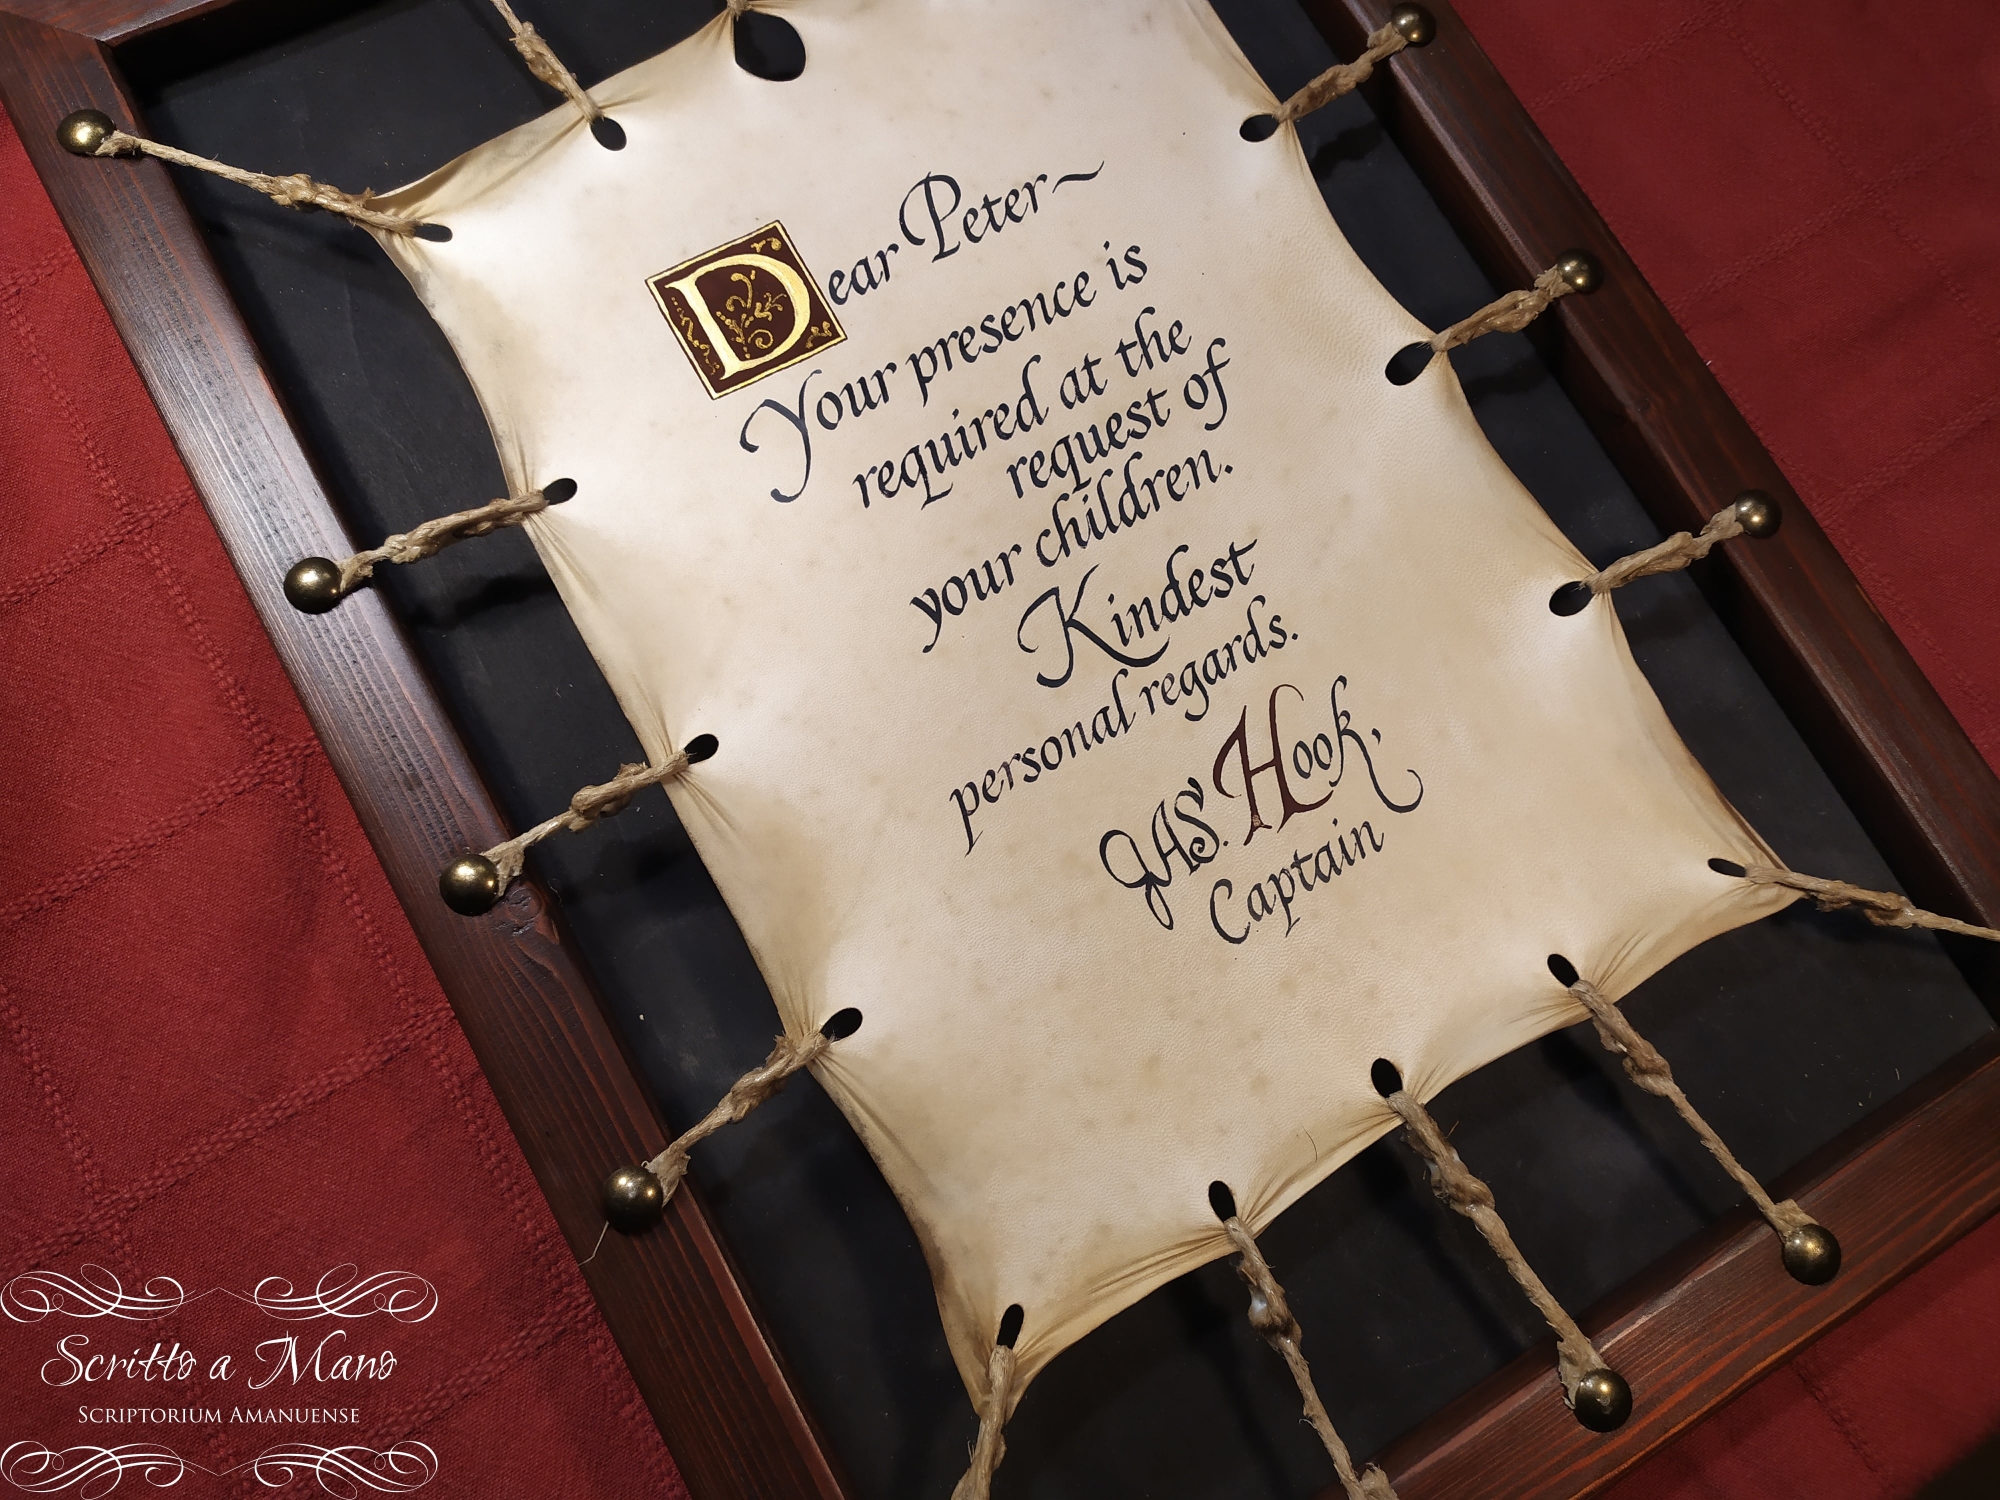 Dear Peter~
Your presence is
required at the
request of
your children.
Kindest
personal regards.
JAS. Hook,
Captain
Scritto a Mano
Scriptorium Amanuense